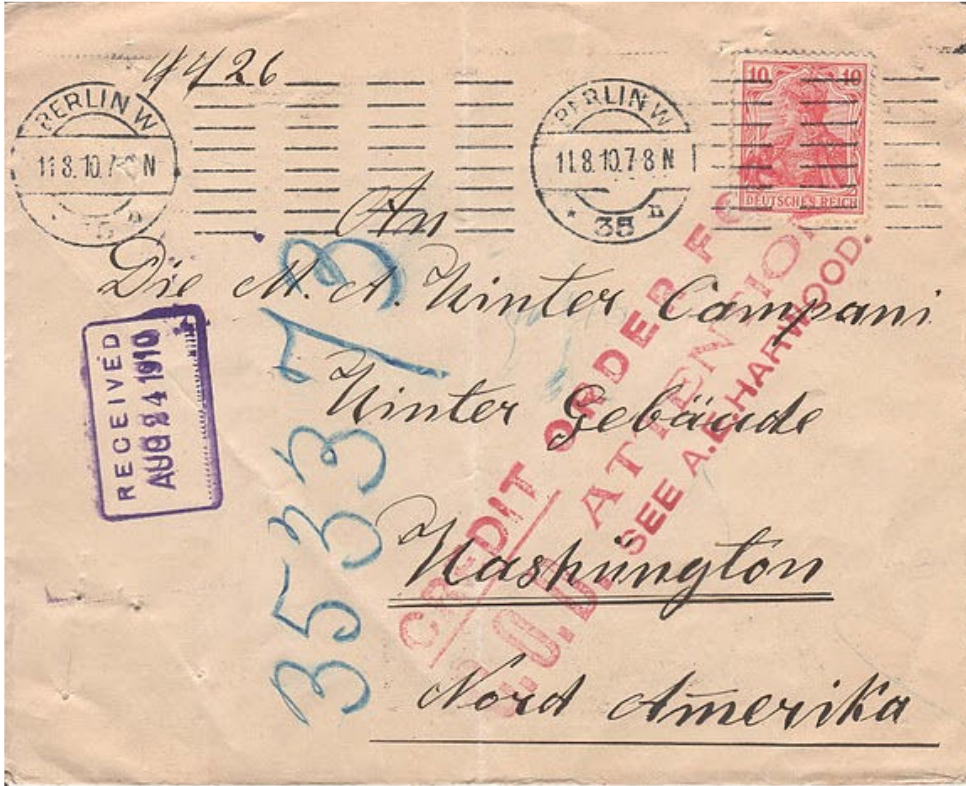 4426
BERLIN W
11.8.10.7-8 N
BERLIN W
11.8.10.7-8 N
* 35 n
10 10
DEUTSCHES REICH
An
Die M. A. Winter Campani
Winter Gebäude
Washington
Nord Amerika
RECEIVED
AUG 24 1910
CREDIT ORDER
C.O.D. ATTENTION
SEE A.E. HARWOOD.